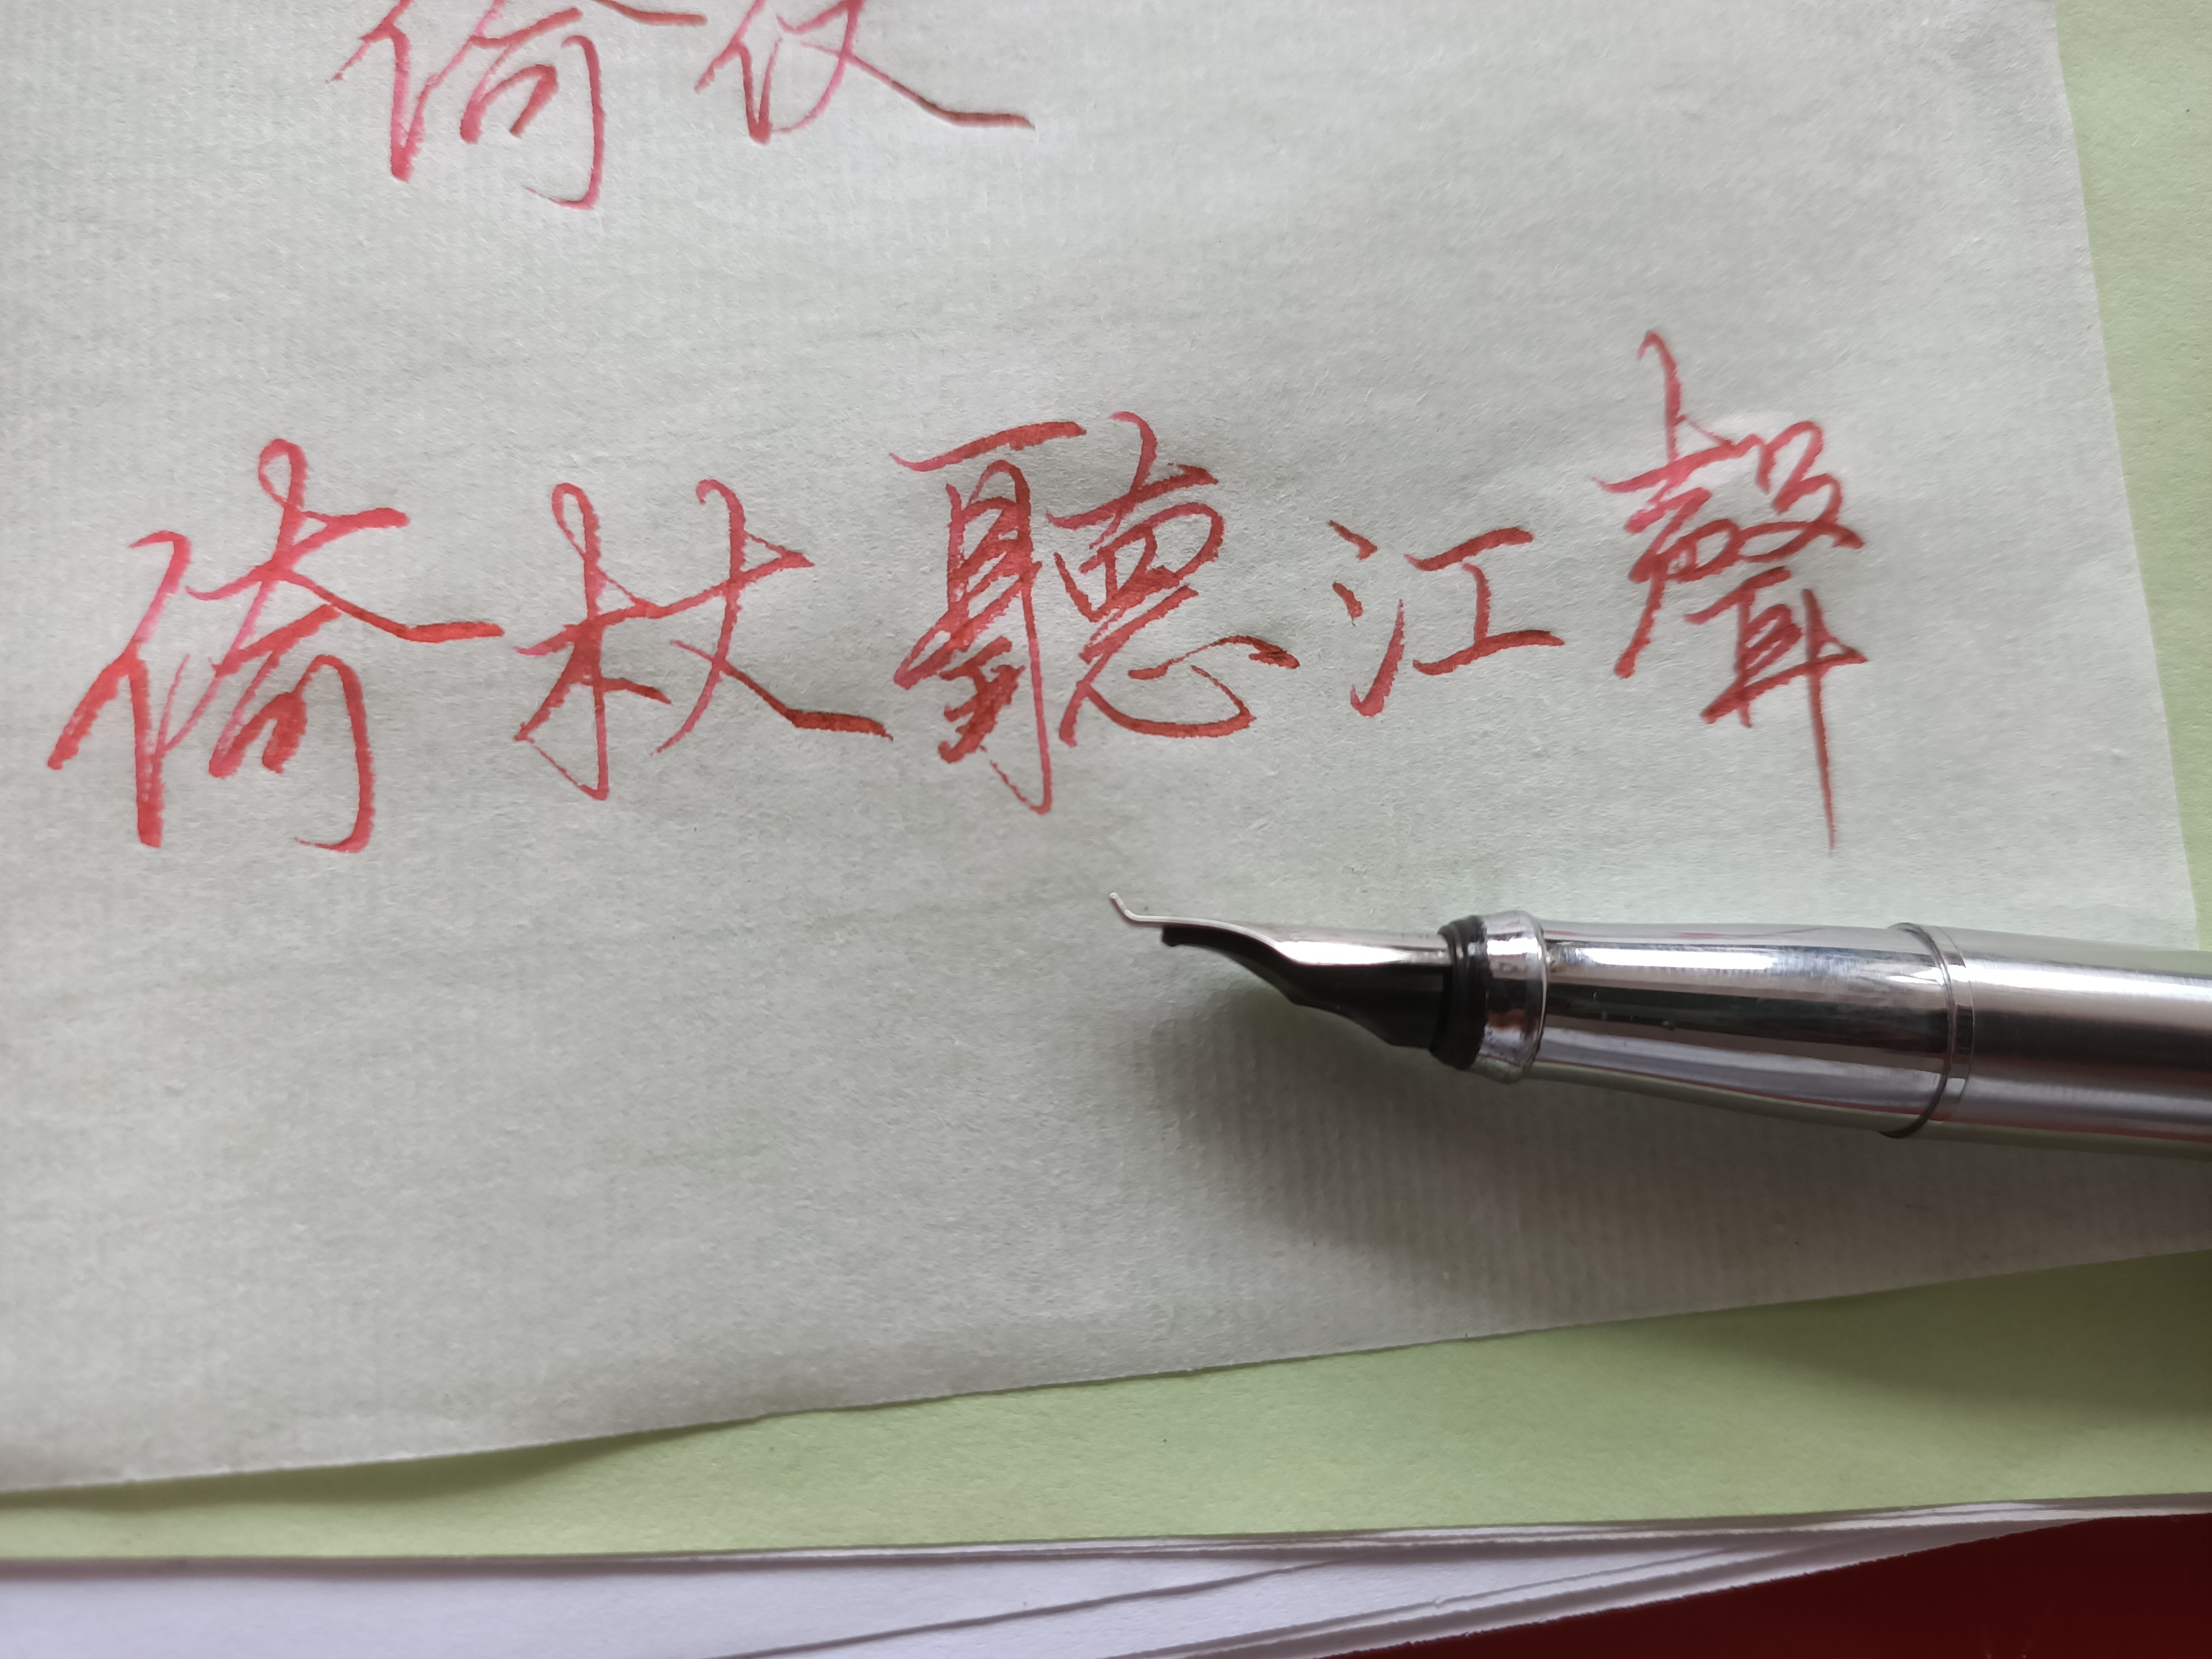 倚仗
倚杖聽江聲